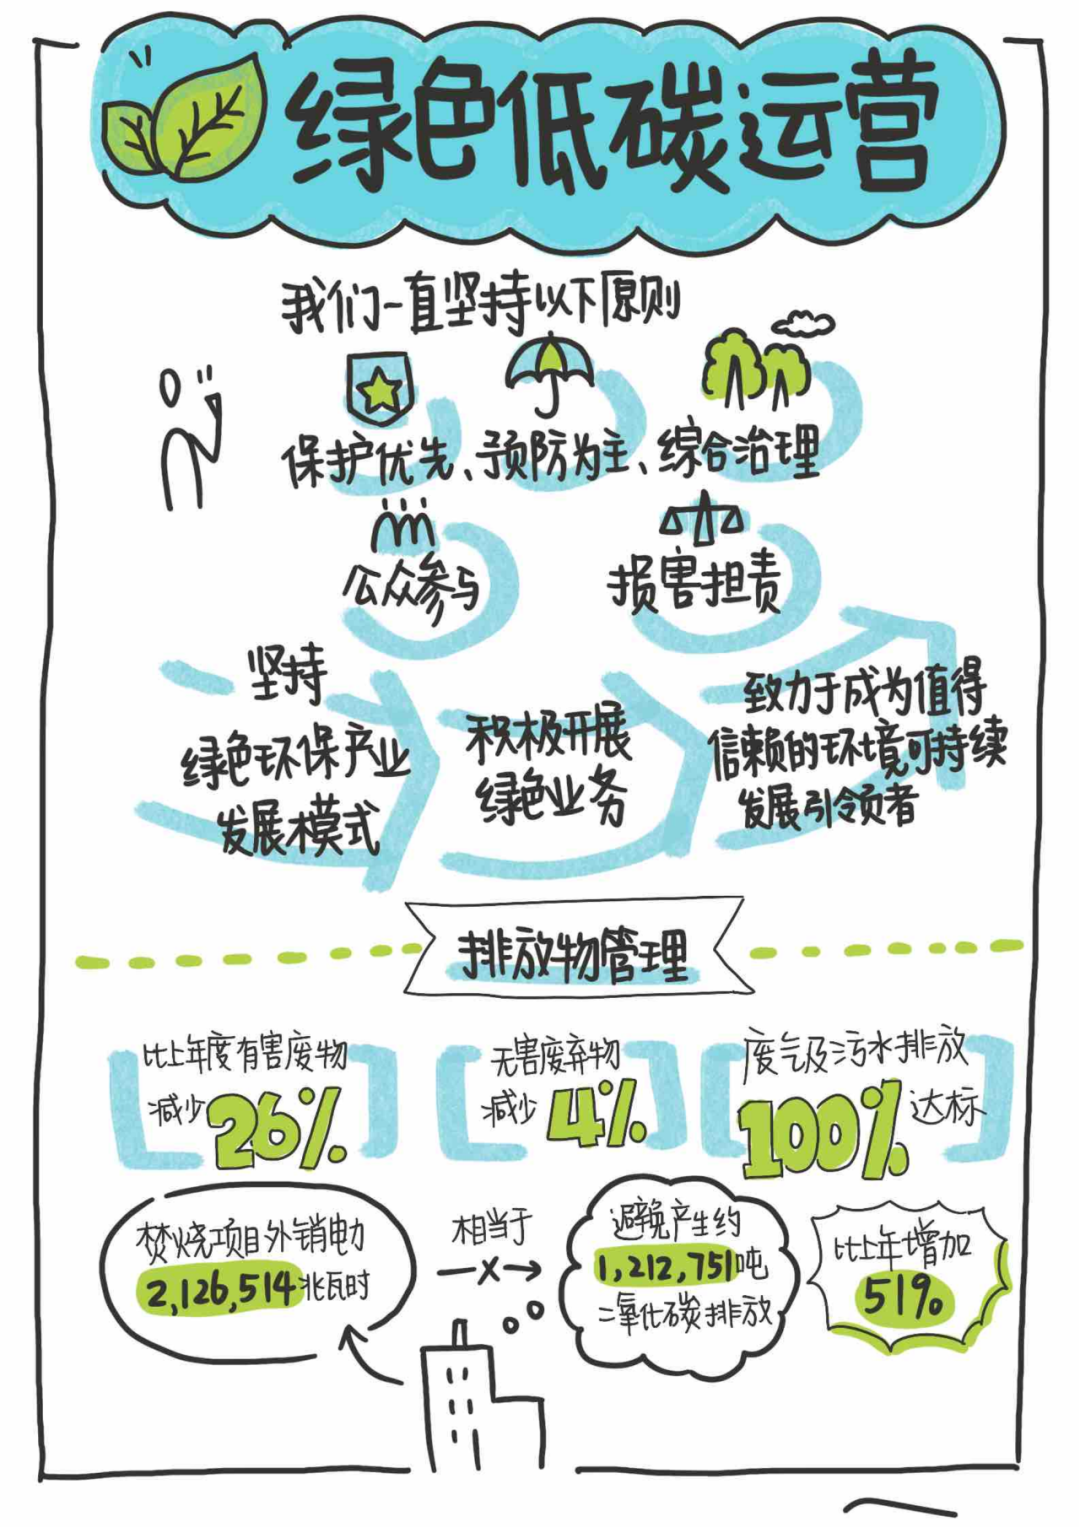 绿色低碳运营
我们一直坚持以下原则
保护优先、预防为主、综合治理
公众参与
损害担责
坚持
绿色环保产业
发展模式
积极开展
绿色业务
致力于成为值得
信赖的环境可持续
发展引领者
排放物管理
比上年度有害废物
减少26%
无害废弃物
减少4%
废气及污水排放
100%达标
焚烧项目外销电力
2,126,514兆瓦时
相当于
避免产生约
1,212,751吨
二氧化碳排放
比上年增加
51%